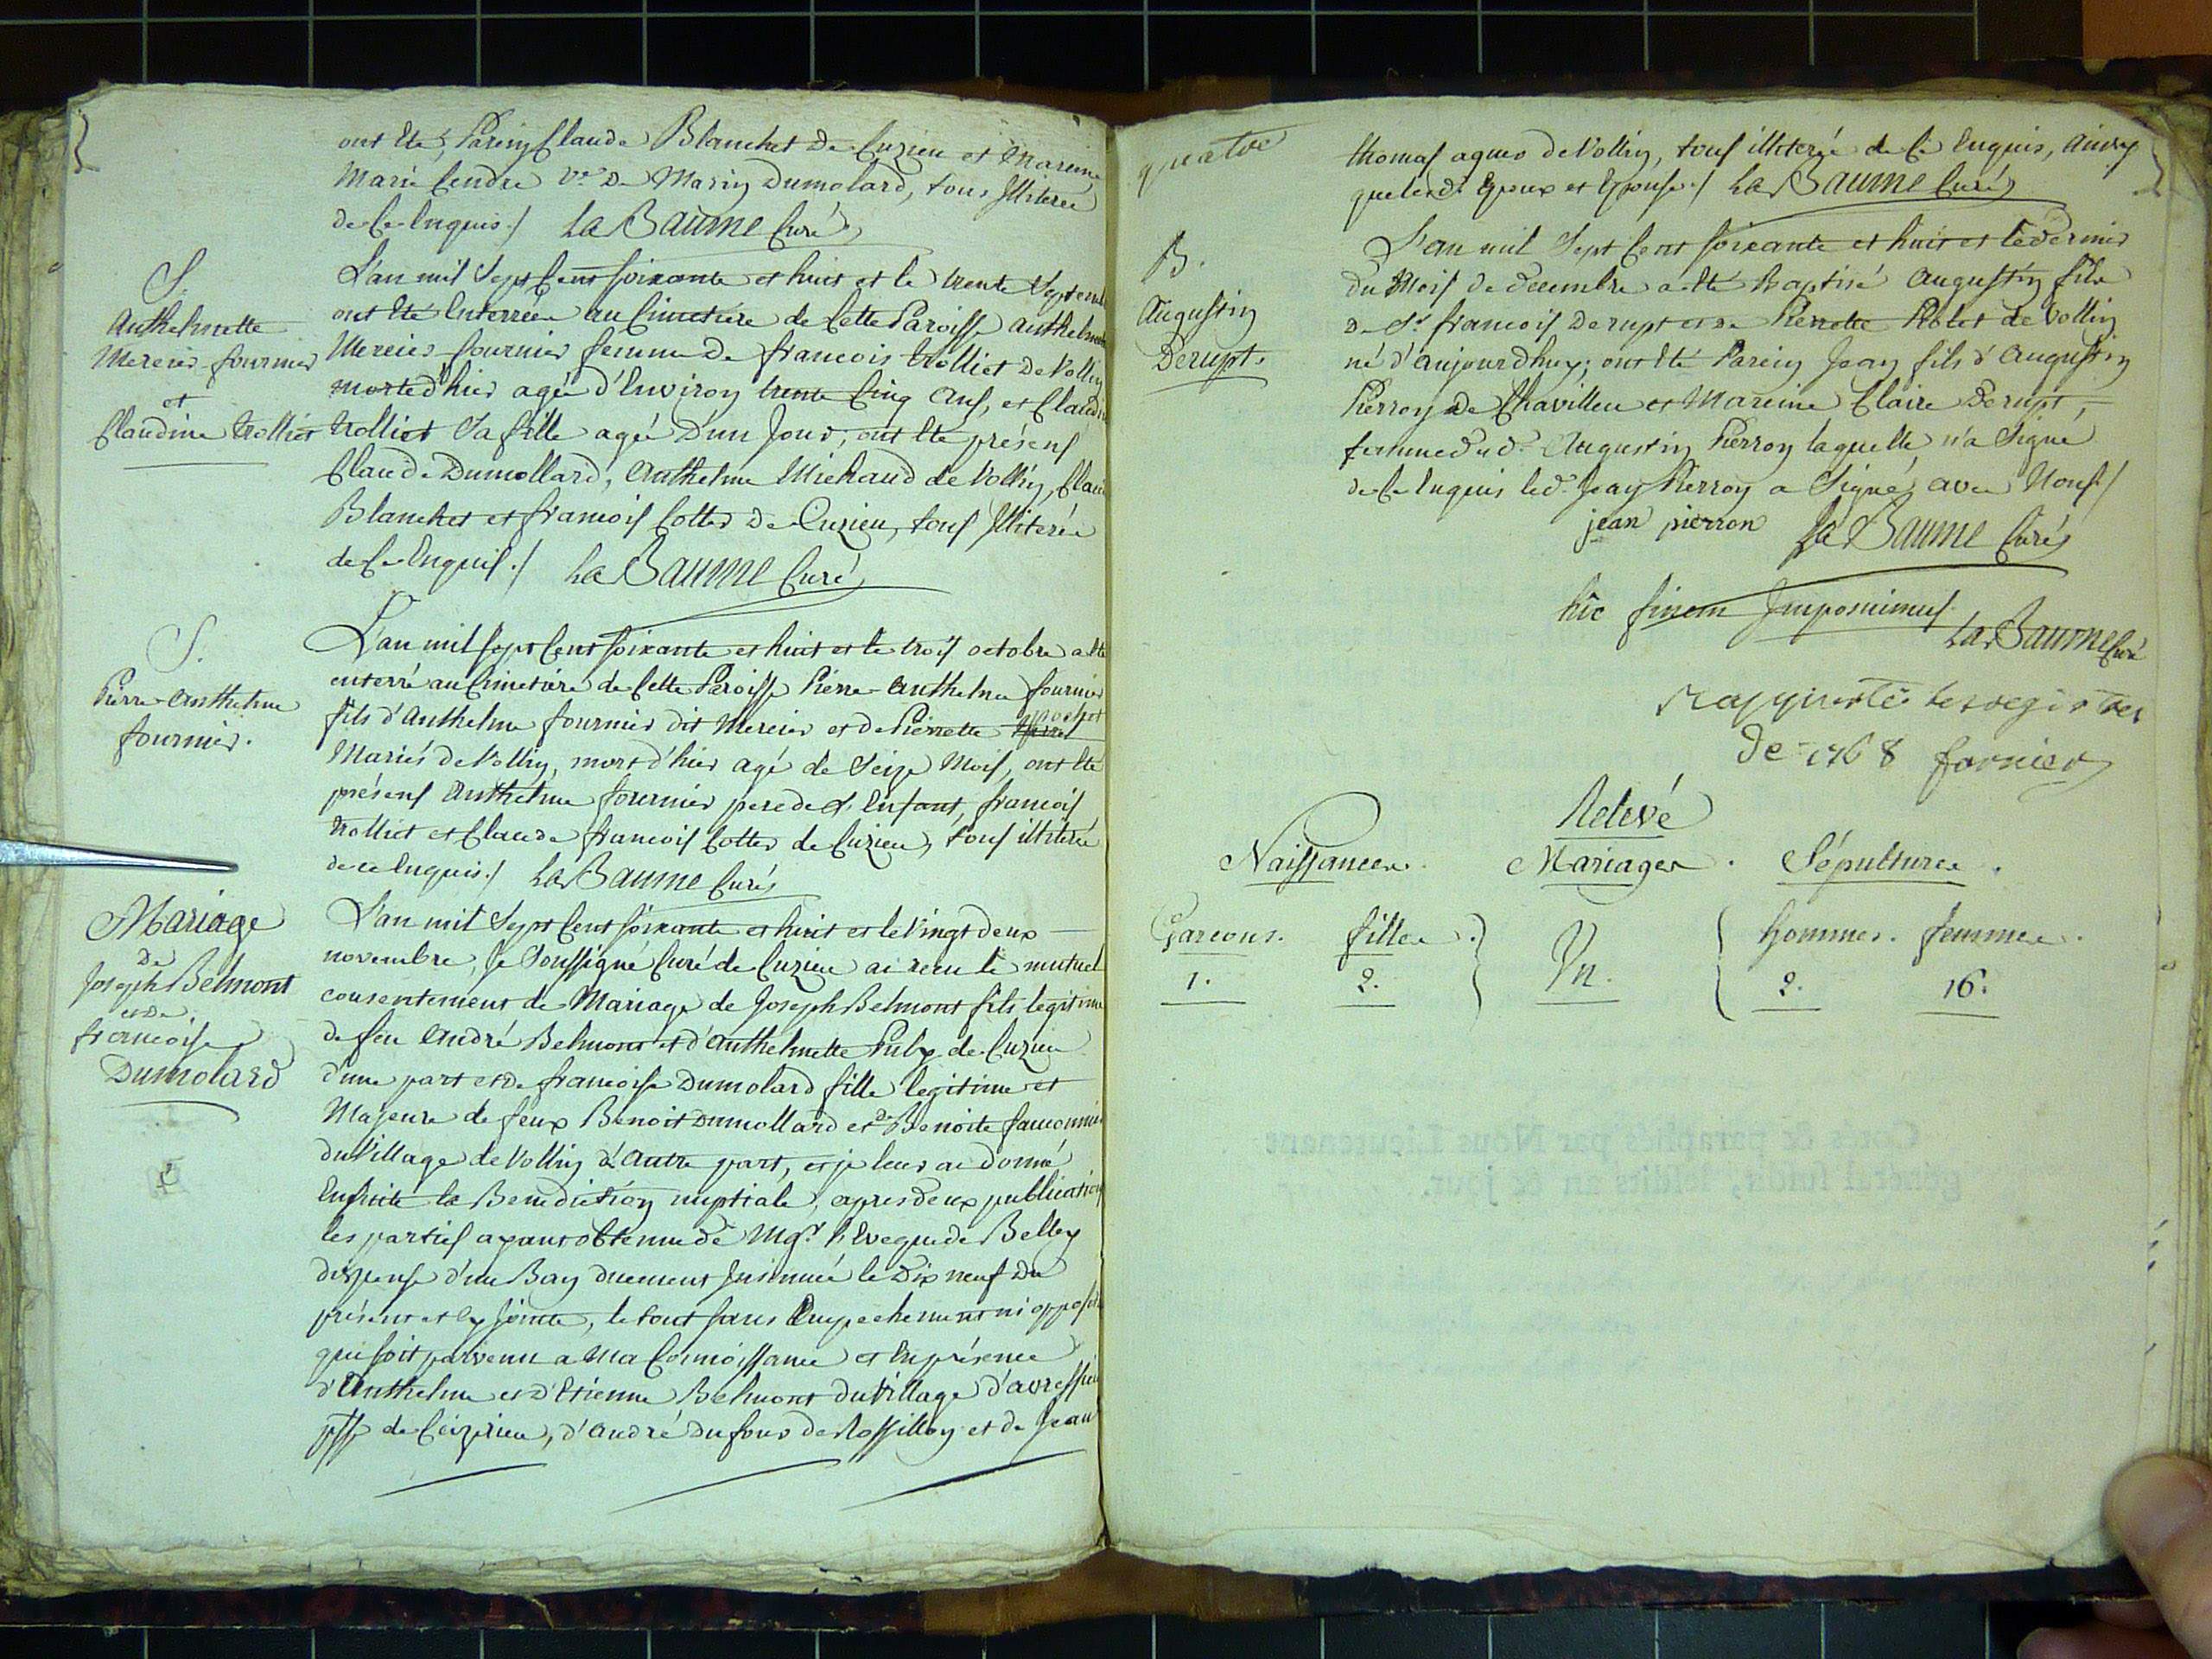 ont eté, Parein Claude Blanchet de Cuzieu et Mareine
Marie Cendre ve. de Marin Dumolard, tous Illiterés
de ce enquis ./ La Baume Curé
S.
Anthelmette
Mercier fournier
et
Claudine trolliet
L'an mil sept cent soixante et huit et le trente septem
ont eté enterrées au Cimetiére de cette Paroisse anthelm
Mercier fournier femme de francois trolliet de Vollin
morte d'hier agée d'Environ trente cinq ans, et Claudine
trolliet sa fille agée d'un Jour, ont ete présens
Claude Dumollard, Anthelme Michaud de Vollin, Claude
Blanchet et francois Cottes de Cuzieu, tous Illiterés
de ce enquis ./ La Baume Curé
S.
Pierre-Anthelme
fournier.
L'an mil sept cent soixante et huit et le trois octobre a eté
enterré au Cimetiére de cette Paroisse Pierre-Anthelme fournier
fils d'Anthelme fournier dit Mercier et de Pierrette
Mariés de Vollin, mort d'hier agé de seize Mois, ont eté
présens Anthelme fournier pere de d. Enfant, francois
trolliet et Claude francois Cottes de Cuzieu, tous illiterés
de ce enquis ./ La Baume Curé
Mariage
de
Joseph Belmont
et de
francoise
Dumolard
L'an mil sept cent soixante et huit et le Vingt deux
novembre, Je soussigné Curé de Cuzieu ai recu le mutuel
consentement de Mariage de Joseph Belmont fils legitime
de feu André Belmont et d'Anthelmette de Cuzieu
d'une part et de francoise Dumolard fille legitime et
Majeure de feux Benoit Dumollard et de Benoite fauconnie
du Village de Vollin d'Autre part, et je leur ai donné
Ensuite la Benediction nuptiale, apres deux publication
les parties ayant obtenu de Mgr. l'Eveque de Belley
dispense d'un Ban duement Insinuée le Dix neuf du
présent et cy Jointe, le tout sans Empechement ni opposi
qui soit parvenu a Ma Connoissance et en présence
d'Anthelme et d'Etienne Belmont du Village d'avressieu
psse de Ceizerieu, d'André Dufour de Rossillon et de Jean
quatre
thomas de Vollin, tous illiterés de ce Enquis, Ainsy
que lesd. Epoux et Epouse ./ La Baume Curé
B.
Augustin
Derupt.
L'an mil sept cent soixante et huit et le dernier
du Mois de decembre a eté Baptisé Augustin fils
de Sr. francois Derupt et de Pierrette de Vollin
né d'aujourd'huy; ont eté Parein Jean fils d'Augustin
Pierron de Chavilleu et Mareine Claire Derupt,
femme dud. Augustin Pierron laquelle n'a signé
de ce enquis led. Jean Pierron a signé avec Nous /
jean pierron La Baume Curé
hîc finem Imposuimus.
La Baume Curé
rapporté les registres
de 1768 fornier
Relevé
Naissances. Mariages. Sépultures.
Garcons. filles. } Un. { hommes. femmes.
1. 2. 2. 16.
Cotés & paraphés par Nous Lieutenant
général susdit, lesdits an & jour.